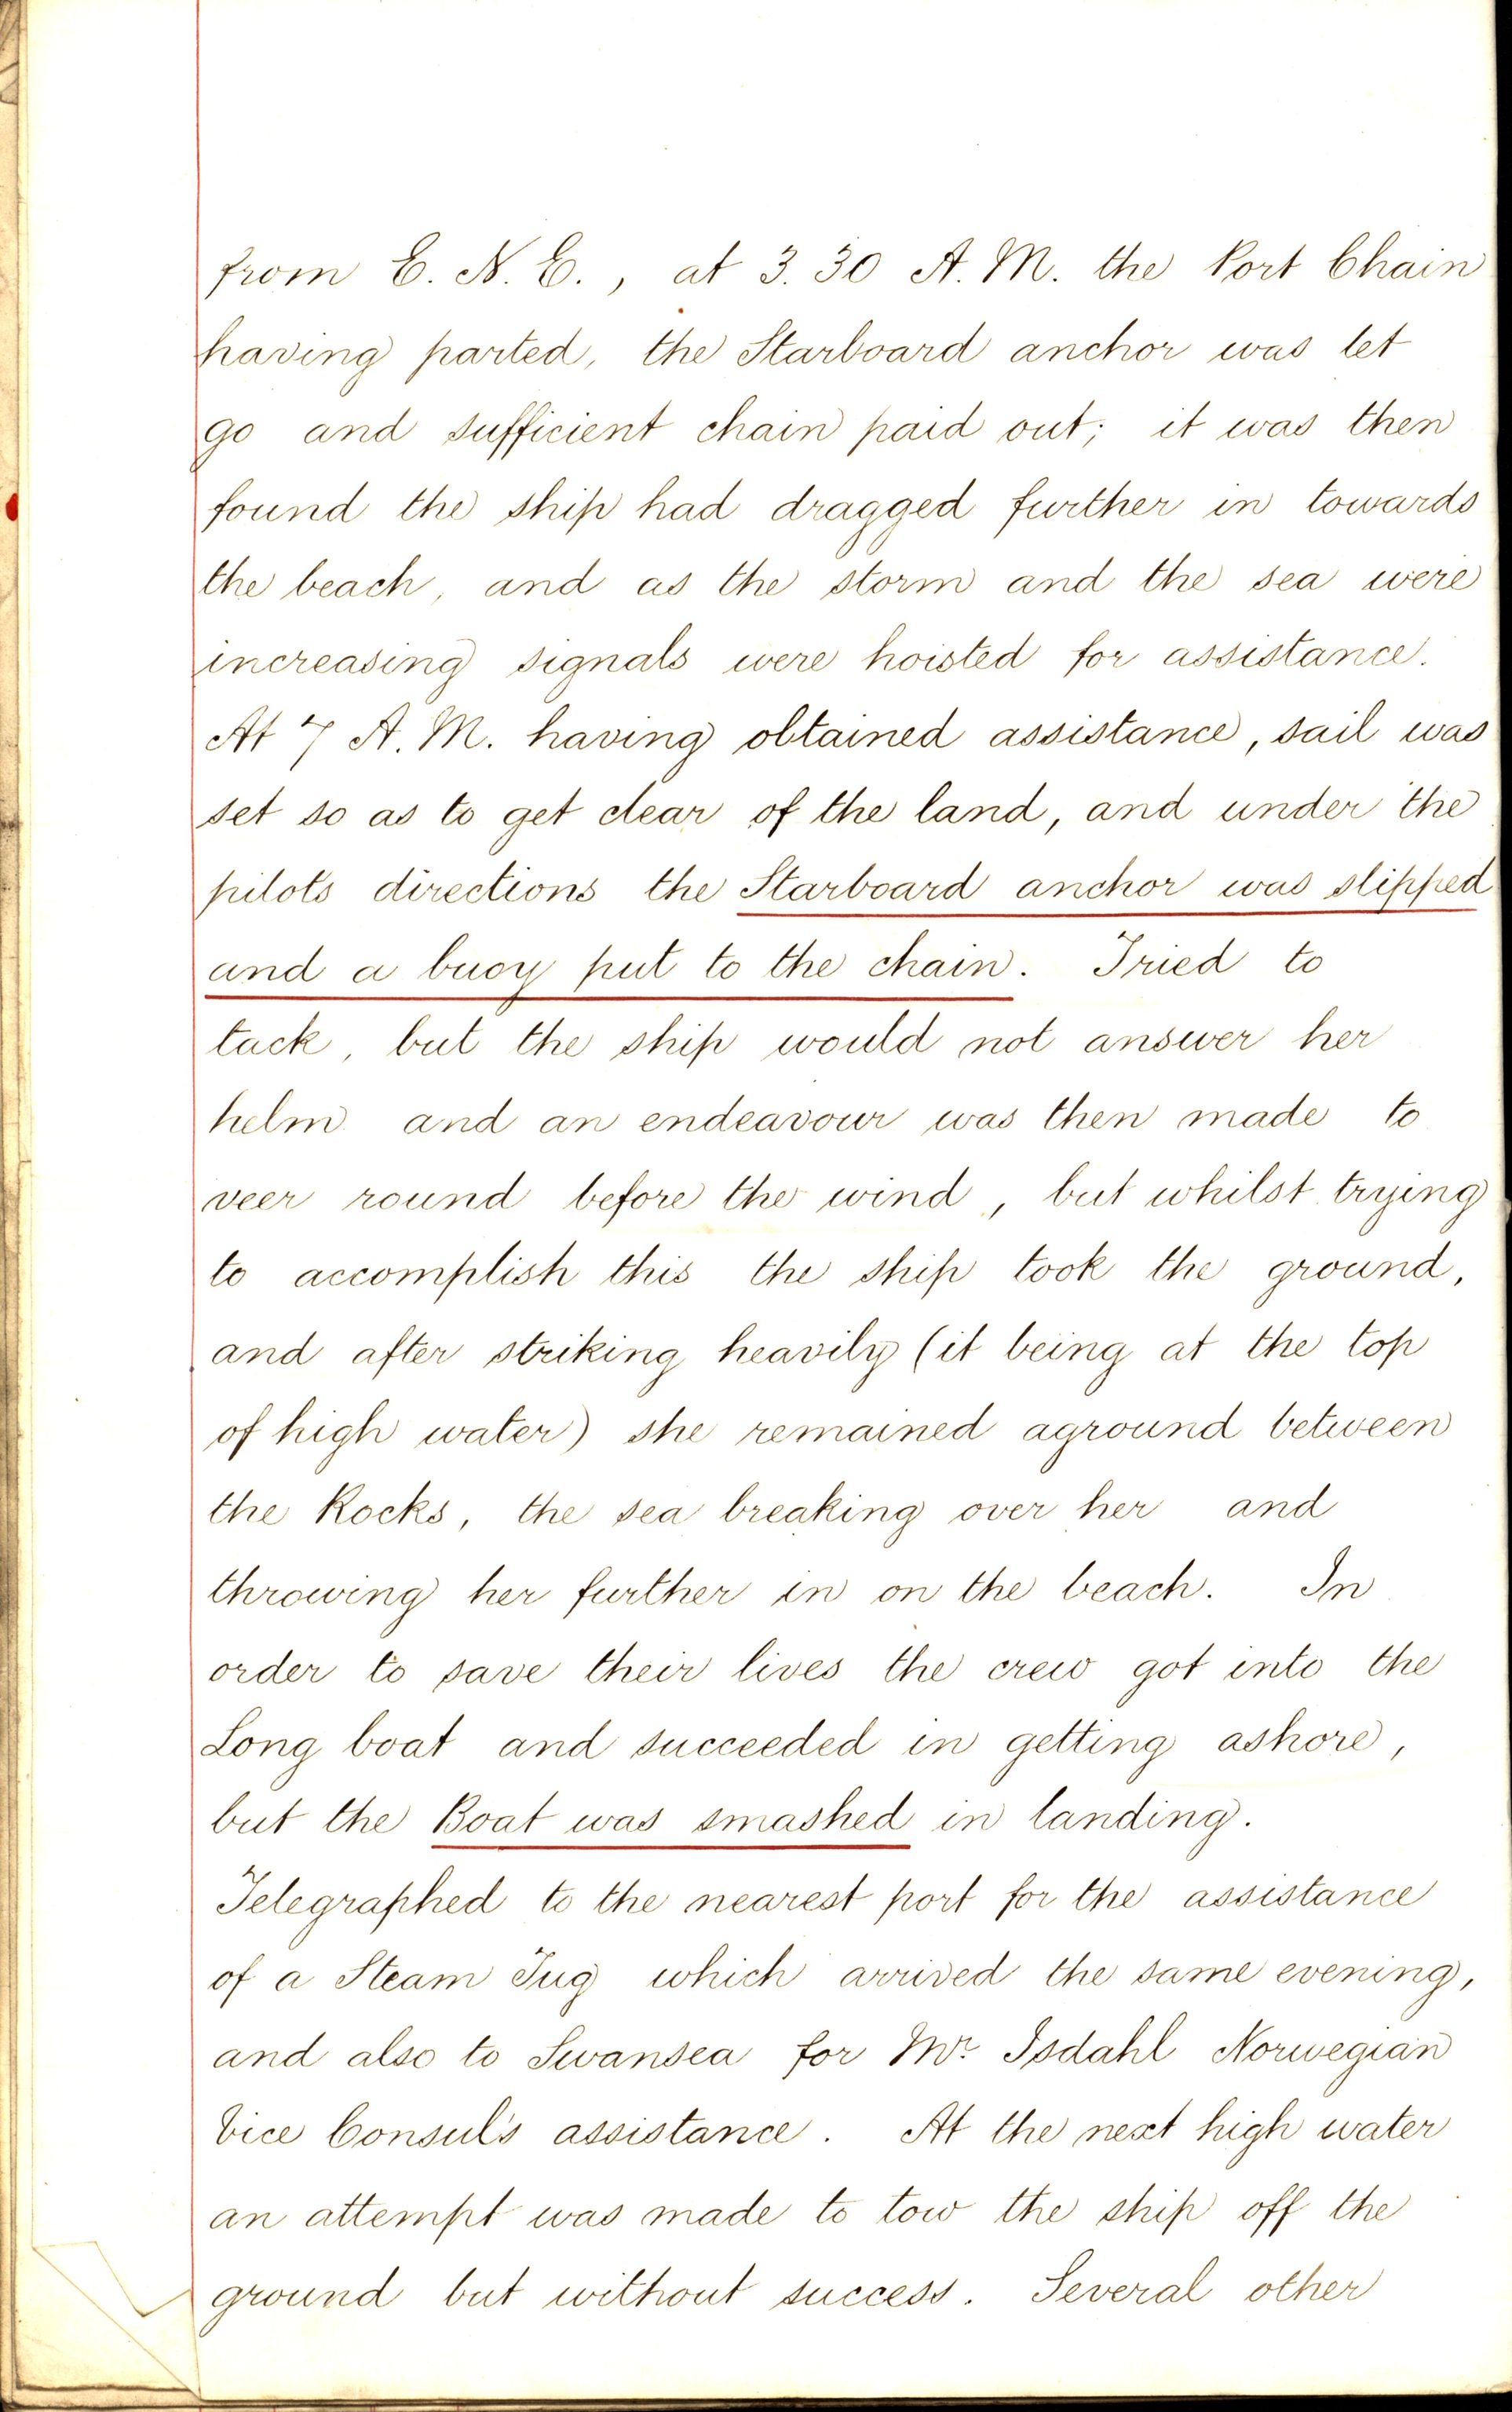 from E. N. E., at 3.30 A.M. the Port Chain
having parted, the Starboard anchor was let
go and sufficient chain paid out; it was then
found the ship had dragged further in towards
the beach, and as the storm and the sea were
increasing signals were hoisted for assistance.
At 7 A.M. having obtained assistance, sail was
set so as to get clear of the land, and under the
pilots directions the Starboard anchor was slipped
and a buoy put to the chain. Tried to
tack, but the ship would not answer her
helm and an endeavour was then made to
veer round before the wind, but whilst trying
to accomplish this the ship took the ground,
and after striking heavily (it being at the top
of high water) she remained aground between
the Rocks, the sea breaking over her and
throwing her further in on the beach. In
order to save their lives the crew got into the
Long boat and succeeded in getting ashore,
but the Boat was smashed in landing.
Telegraphed to the nearest port for the assistance
of a Steam Tug which arrived the same evening,
and also to Swansea for Mr. Isdahl Norwegian
Vice Consul's assistance. At the next high water
an attempt was made to tow the ship off the
ground but without success. Several other